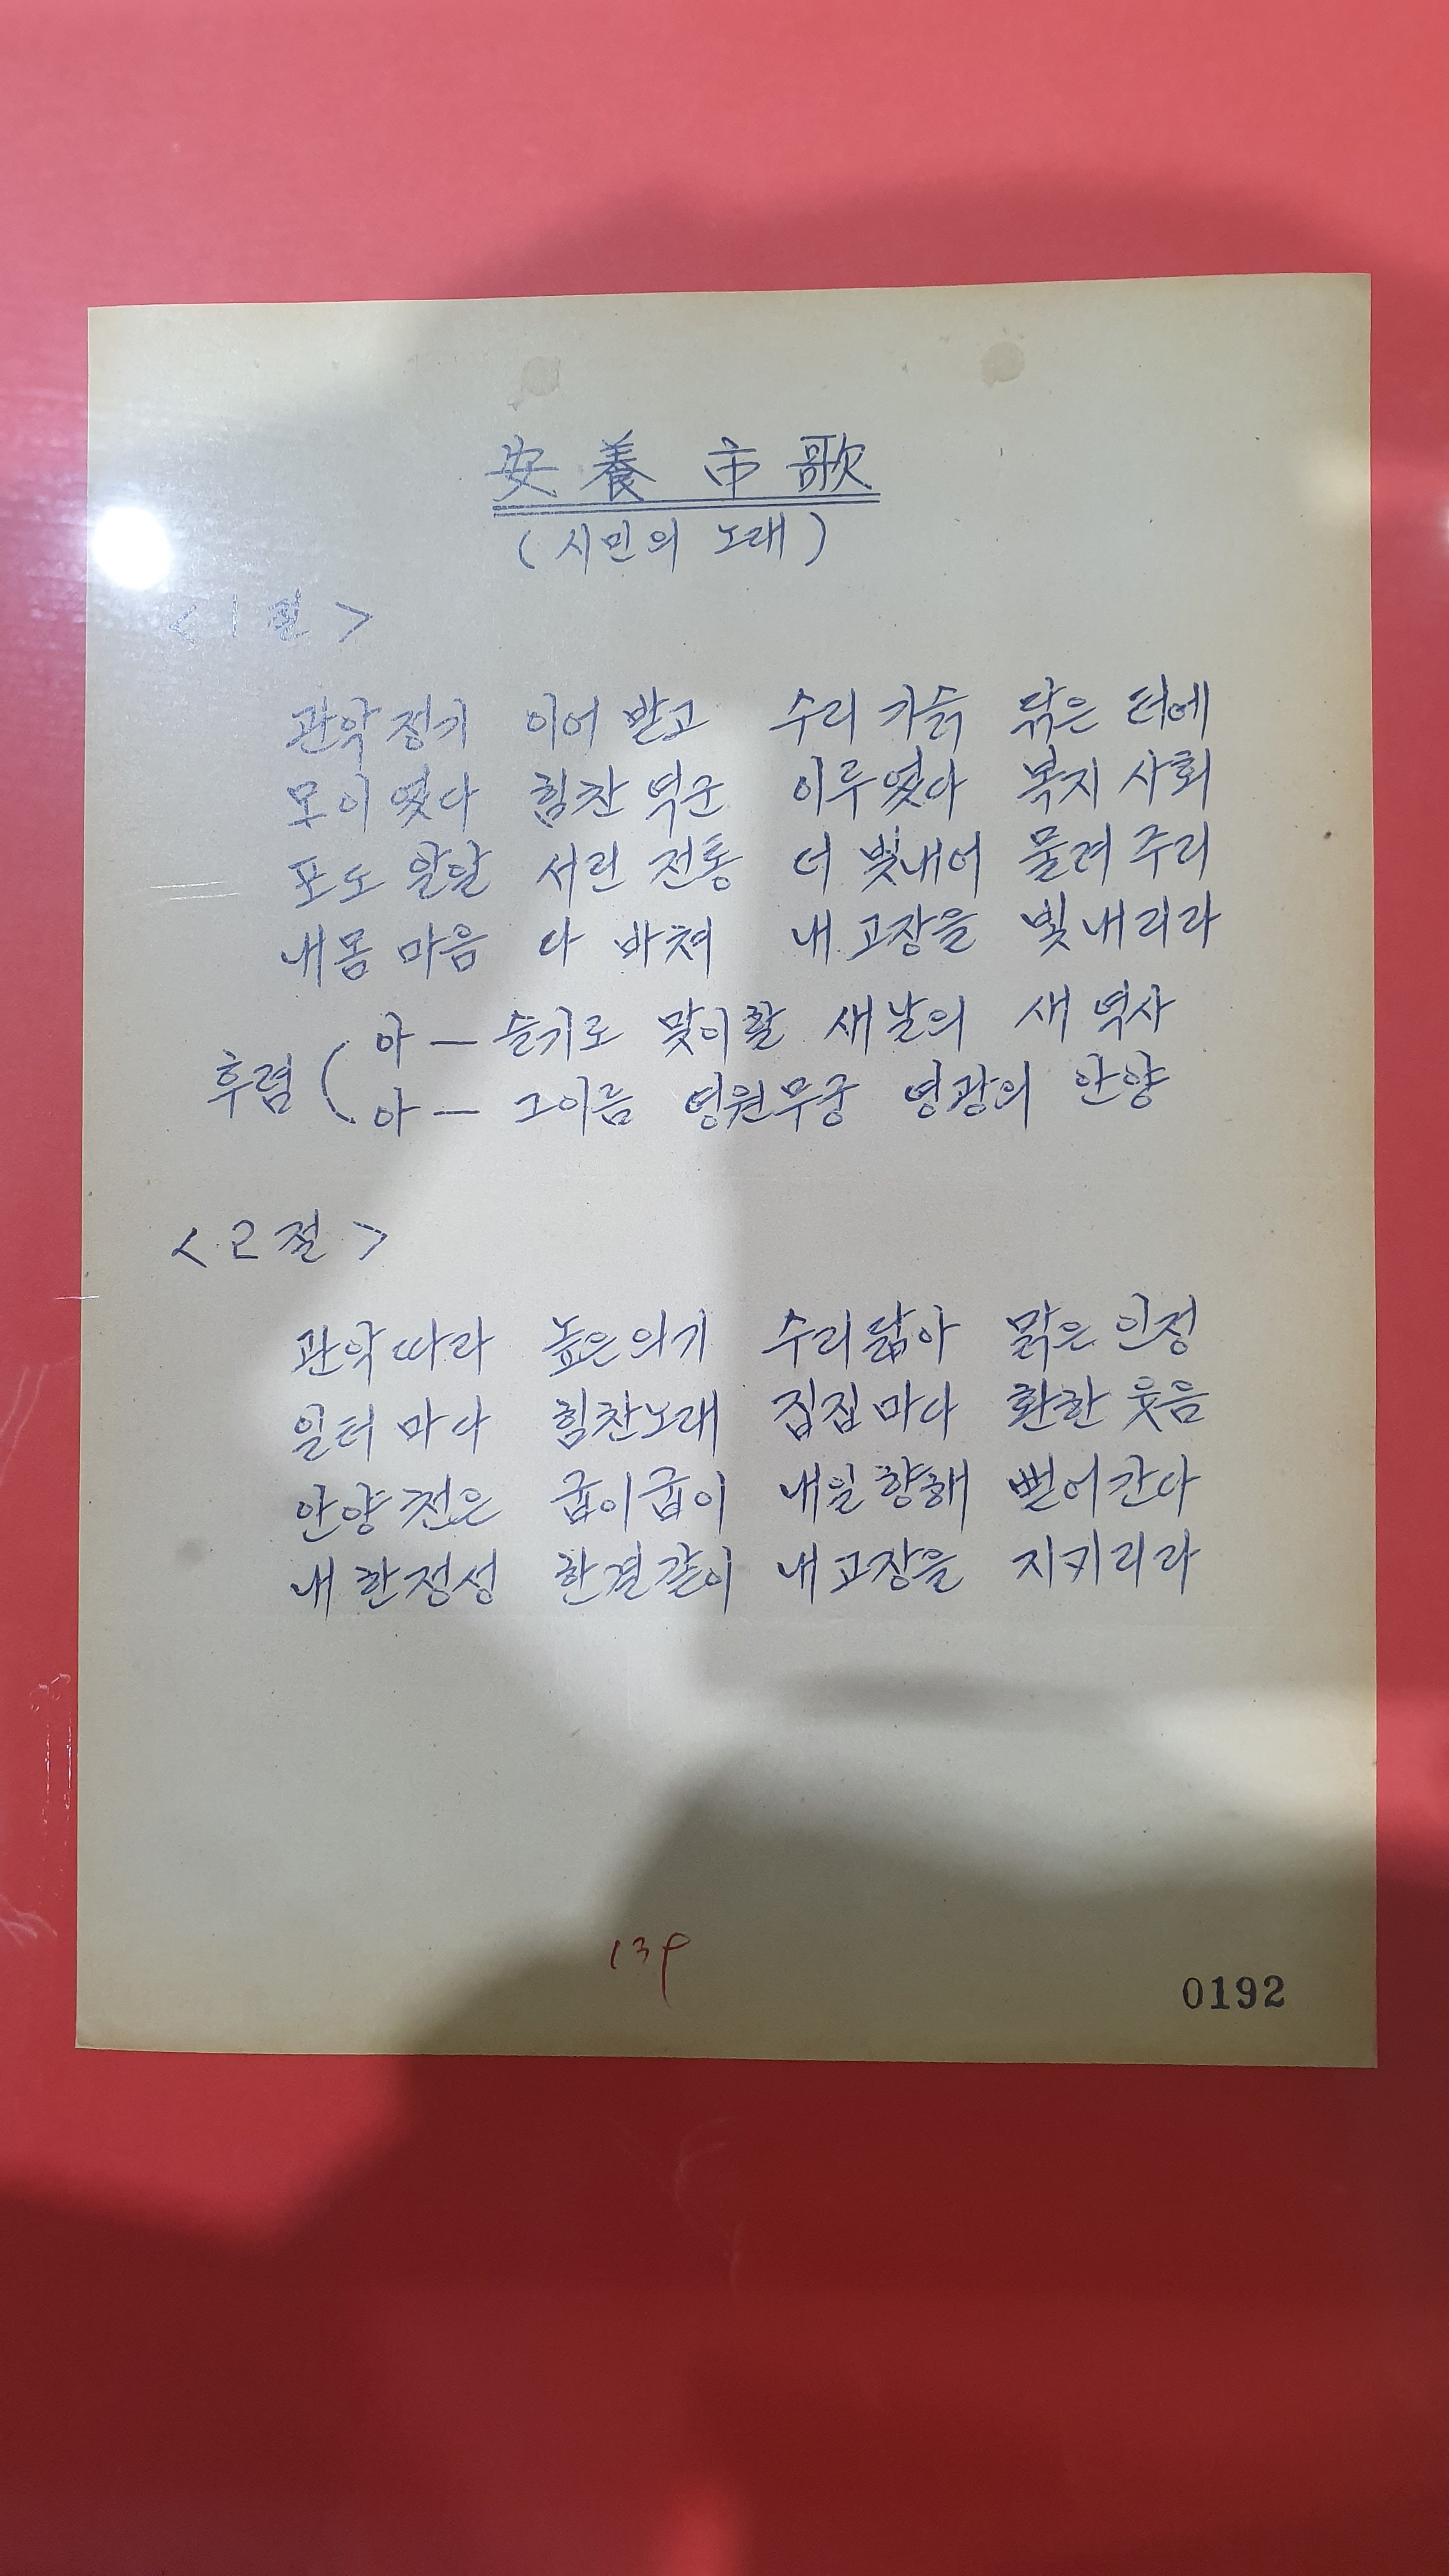 安養市歌
(시민의 노래)
<1절>
관악정기 이어 받고 수리 기슭 닦은 터에
모이였다 힘찬 역군 이루였다 복지 사회
포도 알알 서린 전통 더 빛내어 물려 주리
내몸 마음 다 바쳐 내 고장을 빛내리라
후렴 ( 아 — 슬기로 맞이할 새날의 새 역사
아 — 그이름 영원무궁 영광의 안양
<2절>
관악따라 높은의기 수리닮아 맑은 인정
일터마다 힘찬노래 집집마다 환한 웃음
안양천은 굽이굽이 내일향해 뻗어간다
내한정성 한결같이 내고장을 지키리라
139
0192